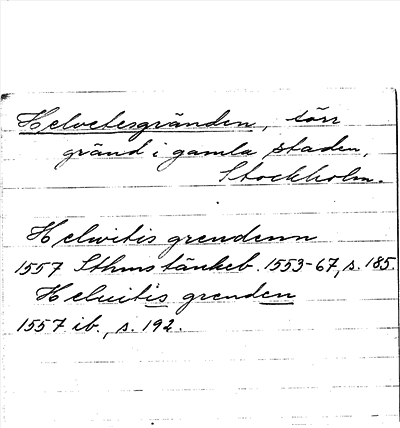 Helvetesgränden, förr
gränd i gamla staden,
Stockholm.
Helwitis grendenn
1557 Sthms tänkeb. 1553-67, s. 185.
Heluitis grenden
1557 ib., s. 192.